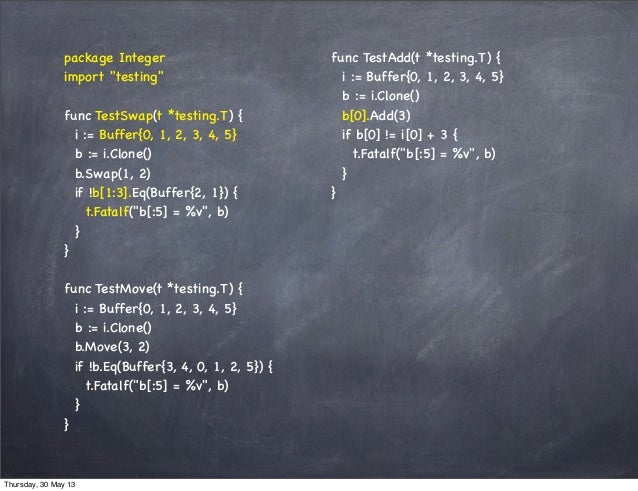 package Integer
import "testing"

func TestSwap(t *testing.T) {
  i := Buffer{0, 1, 2, 3, 4, 5}
  b := i.Clone()
  b.Swap(1, 2)
  if !b[1:3].Eq(Buffer{2, 1}) {
    t.Fatalf("b[:5] = %v", b)
  }
}

func TestMove(t *testing.T) {
  i := Buffer{0, 1, 2, 3, 4, 5}
  b := i.Clone()
  b.Move(3, 2)
  if !b.Eq(Buffer{3, 4, 0, 1, 2, 5}) {
    t.Fatalf("b[:5] = %v", b)
  }
}

func TestAdd(t *testing.T) {
  i := Buffer{0, 1, 2, 3, 4, 5}
  b := i.Clone()
  b[0].Add(3)
  if b[0] != i[0] + 3 {
    t.Fatalf("b[:5] = %v", b)
  }
}

Thursday, 30 May 13